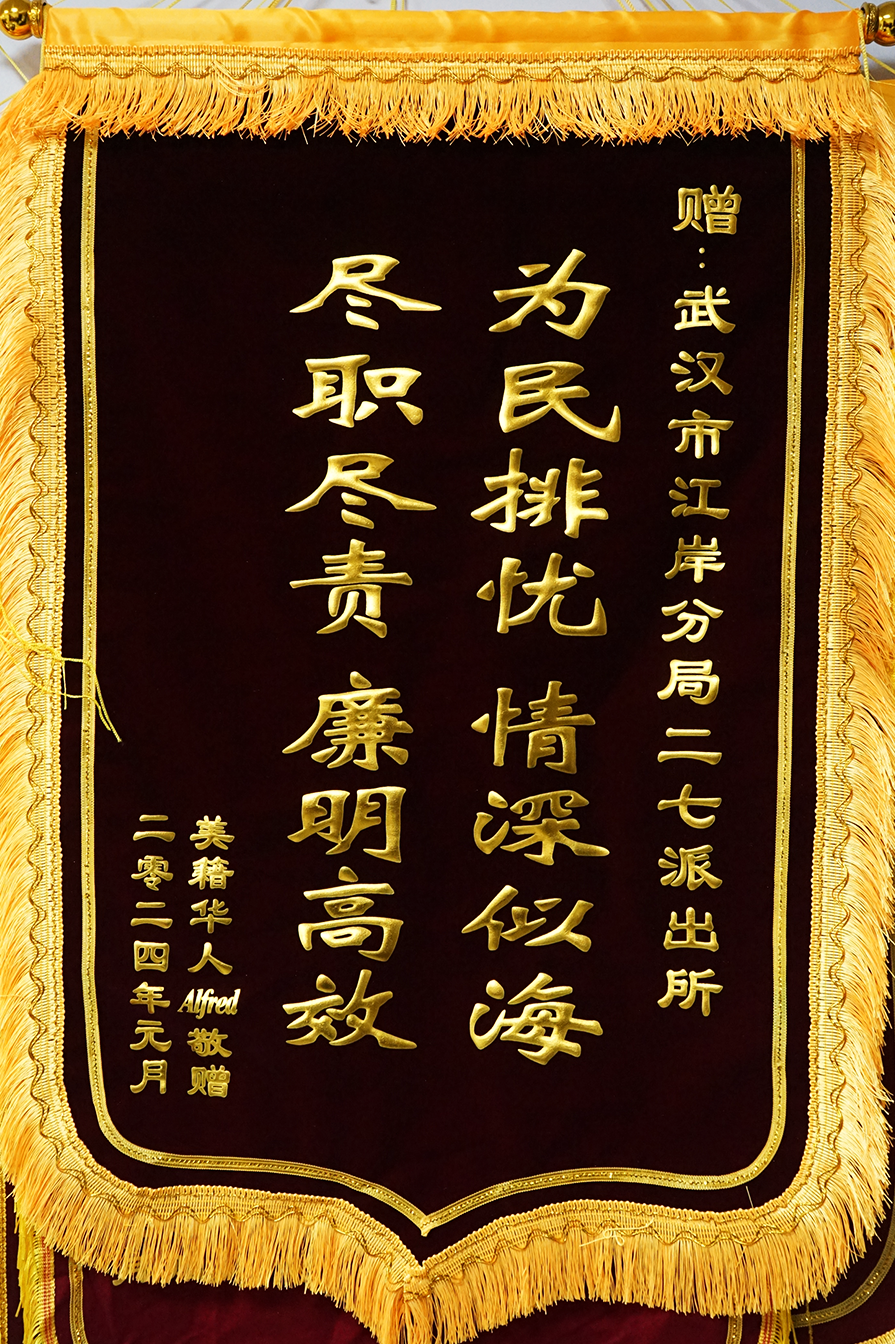 赠:武汉市江岸分局二七派出所
为民排忧 情深似海
尽职尽责 廉明高效
美籍华人Alfred敬赠
二零二四年元月